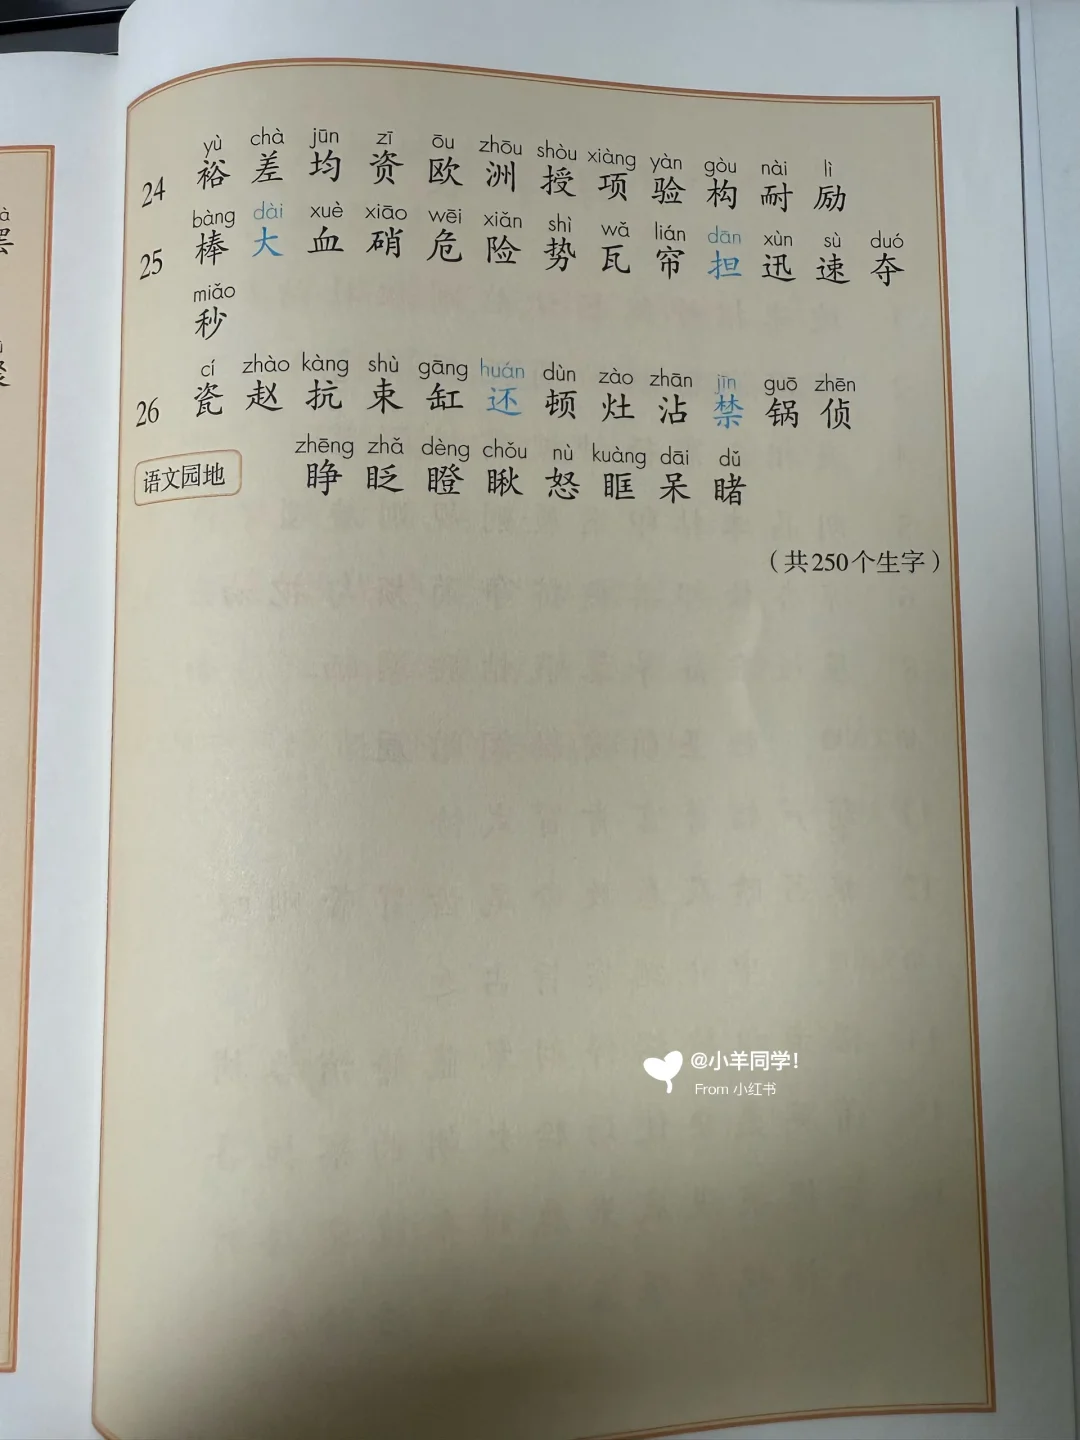 yù chà jūn zī ōu zhōu shòu xiàng yàn gòu nài lì
24 裕 差 均 资 欧 洲 授 项 验 构 耐 励
bàng dài xuè xiāo wēi xiǎn shì wǎ lián dān xùn sù duó
25 棒 大 血 硝 危 险 势 瓦 帘 担 迅 速 夺
miǎo
秒
cí zhào kàng shù gāng huán dùn zào zhān jīn guō zhēn
26 瓷 赵 抗 束 缸 还 顿 灶 沾 禁 锅 侦
zhēng zhǎ dèng chǒu nù kuàng dāi dǔ
语文园地 睁 眨 瞪 瞅 怒 眶 呆 睹
（共250个生字）
@小羊同学!
From 小红书